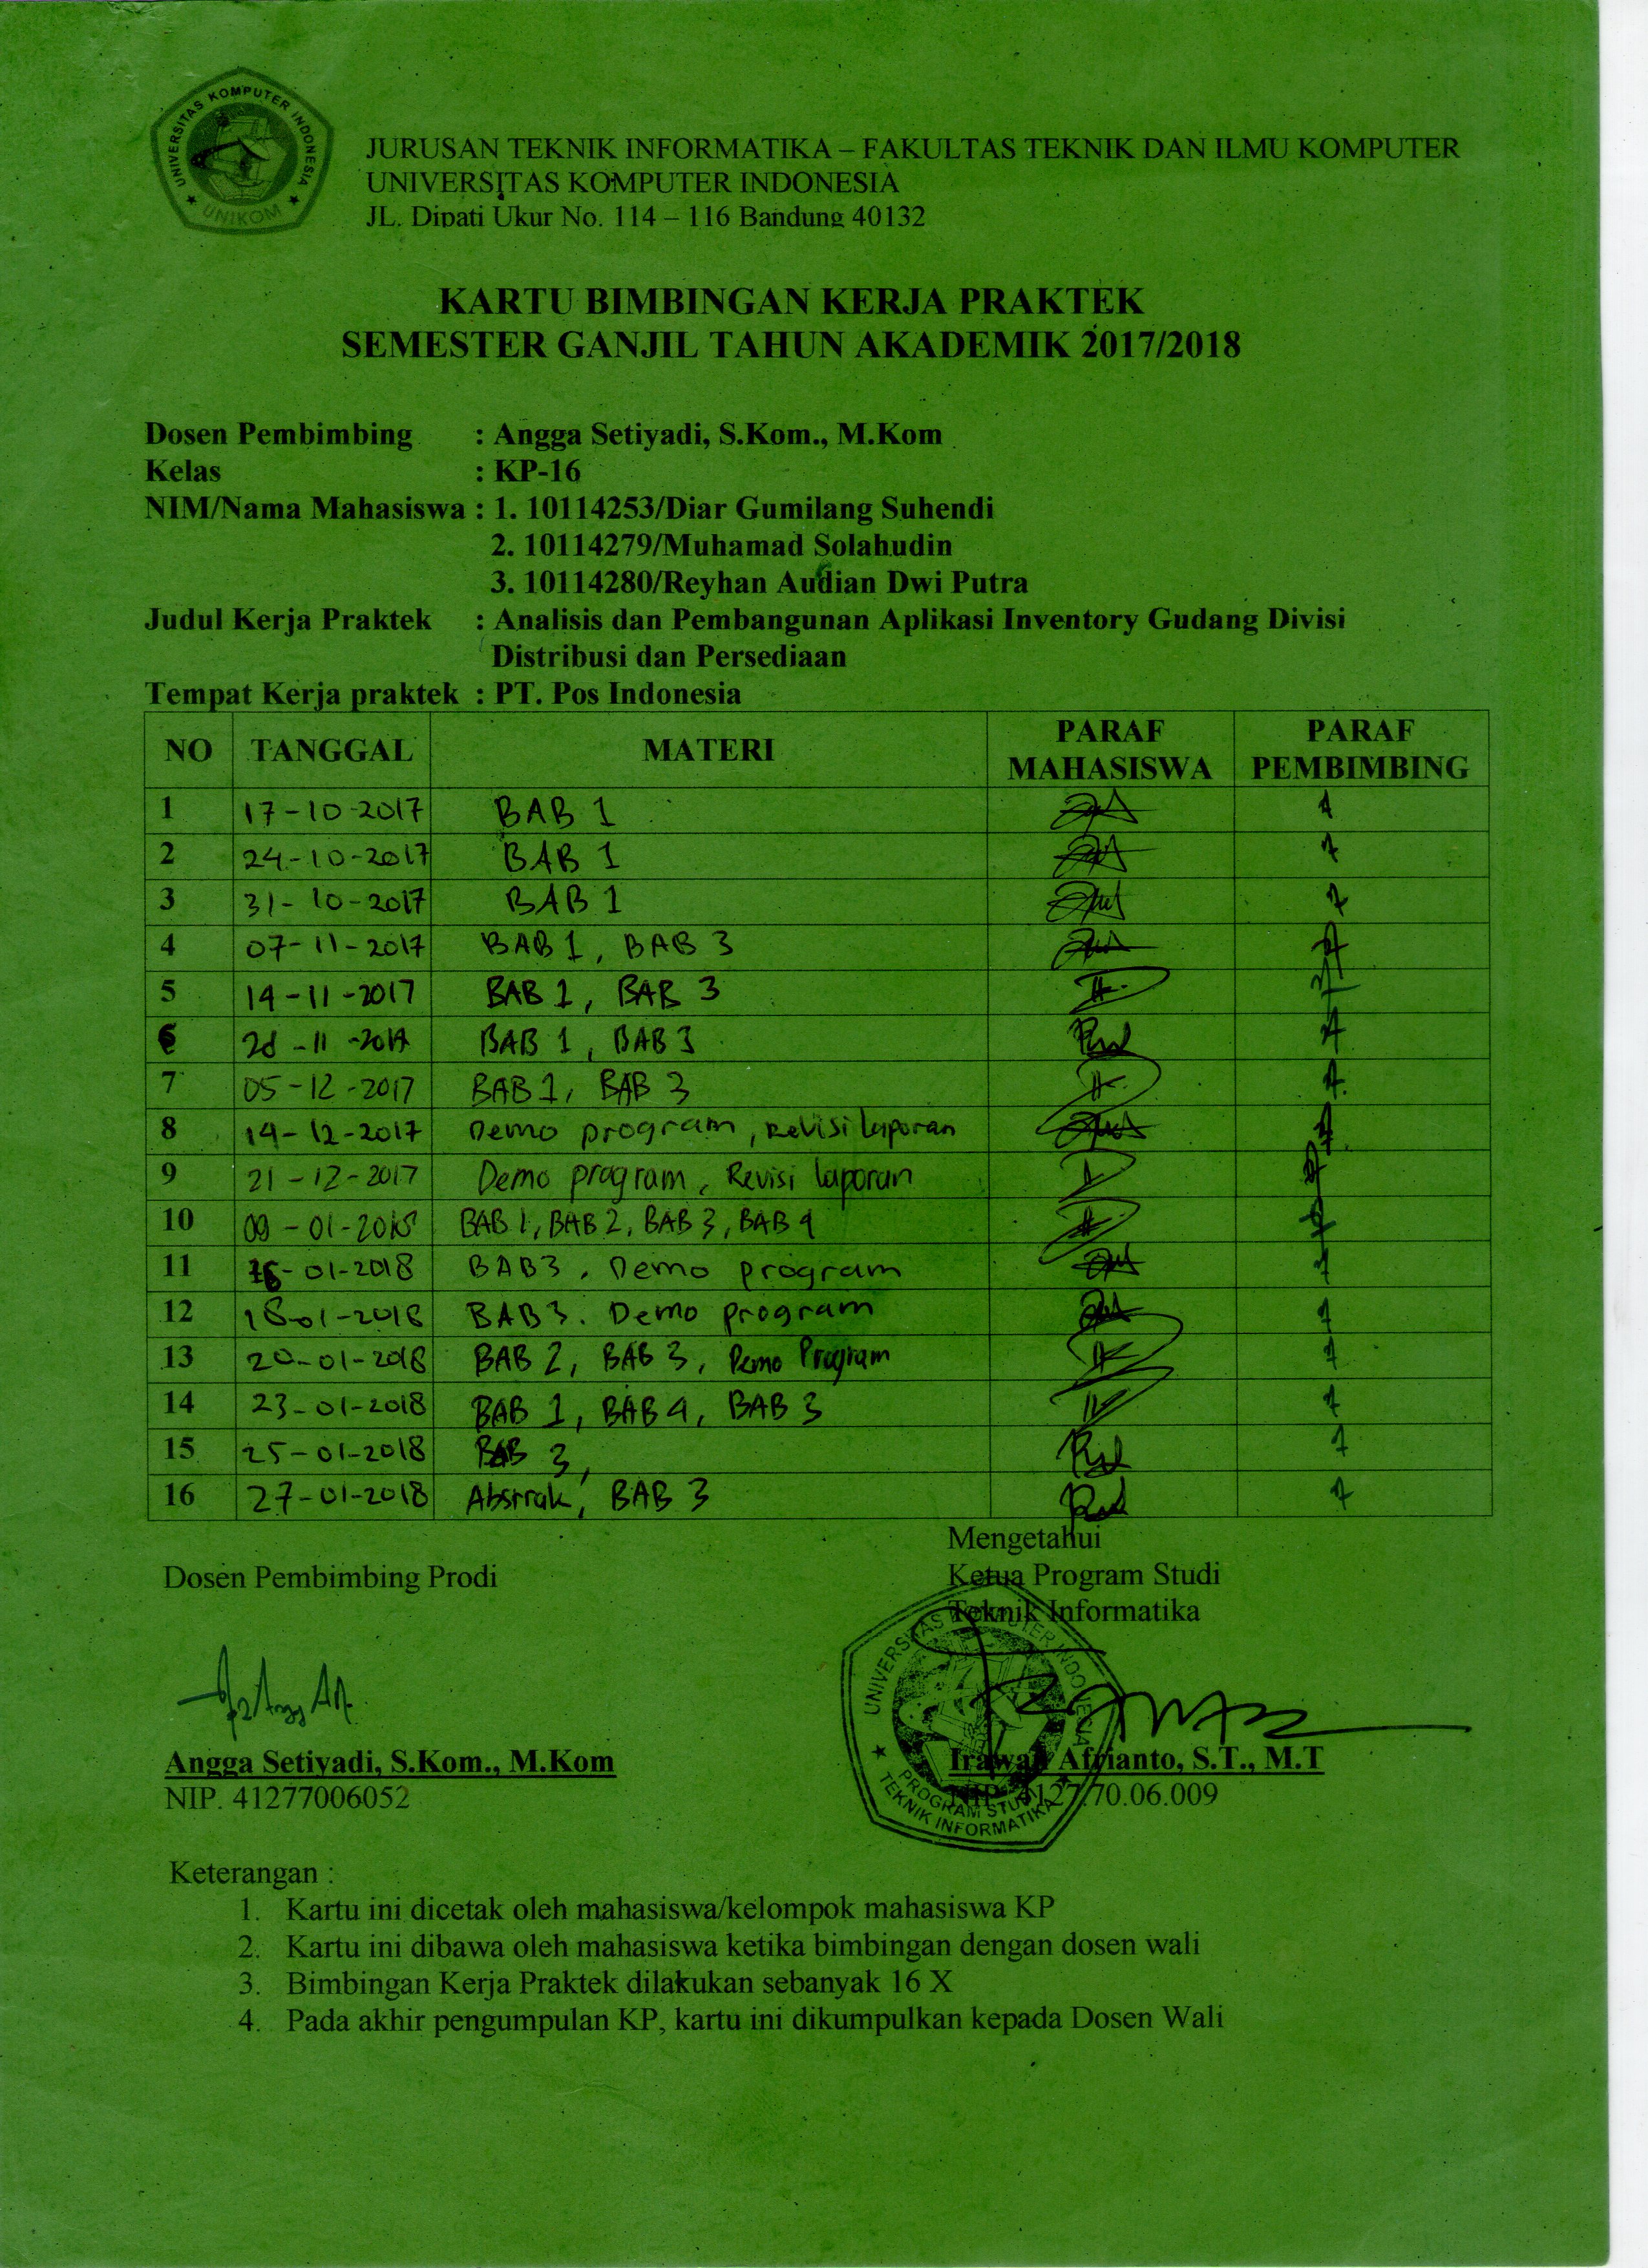 UNIVERSITAS KOMPUTER INDONESIA
UNIKOM
JURUSAN TEKNIK INFORMATIKA – FAKULTAS TEKNIK DAN ILMU KOMPUTER
UNIVERSITAS KOMPUTER INDONESIA
JL. Dipati Ukur No. 114 – 116 Bandung 40132
KARTU BIMBINGAN KERJA PRAKTEK
SEMESTER GANJIL TAHUN AKADEMIK 2017/2018
Dosen Pembimbing : Angga Setiyadi, S.Kom., M.Kom
Kelas : KP-16
NIM/Nama Mahasiswa : 1. 10114253/Diar Gumilang Suhendi
2. 10114279/Muhamad Solahudin
3. 10114280/Reyhan Audian Dwi Putra
Judul Kerja Praktek : Analisis dan Pembangunan Aplikasi Inventory Gudang Divisi
Distribusi dan Persediaan
Tempat Kerja praktek : PT. Pos Indonesia
NO TANGGAL MATERI PARAF MAHASISWA PARAF PEMBIMBING
1 17-10-2017 BAB 1
2 24-10-2017 BAB 1
3 31-10-2017 BAB 1
4 07-11-2017 BAB 1, BAB 3
5 14-11-2017 BAB 1, BAB 3
6 28-11-2017 BAB 1, BAB 3
7 05-12-2017 BAB 1, BAB 3
8 14-12-2017 Demo program, Revisi laporan
9 21-12-2017 Demo program, Revisi laporan
10 09-01-2018 BAB 1, BAB 2, BAB 3, BAB 4
11 16-01-2018 BAB 3, Demo program
12 18-01-2018 BAB 3. Demo program
13 20-01-2018 BAB 2, BAB 3, Demo Program
14 23-01-2018 BAB 1, BAB 4, BAB 3
15 25-01-2018 BAB 3,
16 27-01-2018 Abstrak, BAB 3
Mengetahui
Dosen Pembimbing Prodi Ketua Program Studi
Teknik Informatika
UNIVERSITAS KOMPUTER INDONESIA
PROGRAM STUDI
TEKNIK INFORMATIKA
Angga Setiyadi, S.Kom., M.Kom Irawan Afrianto, S.T., M.T
NIP. 41277006052 NIP. 4127.70.06.009
Keterangan :
1. Kartu ini dicetak oleh mahasiswa/kelompok mahasiswa KP
2. Kartu ini dibawa oleh mahasiswa ketika bimbingan dengan dosen wali
3. Bimbingan Kerja Praktek dilakukan sebanyak 16 X
4. Pada akhir pengumpulan KP, kartu ini dikumpulkan kepada Dosen Wali